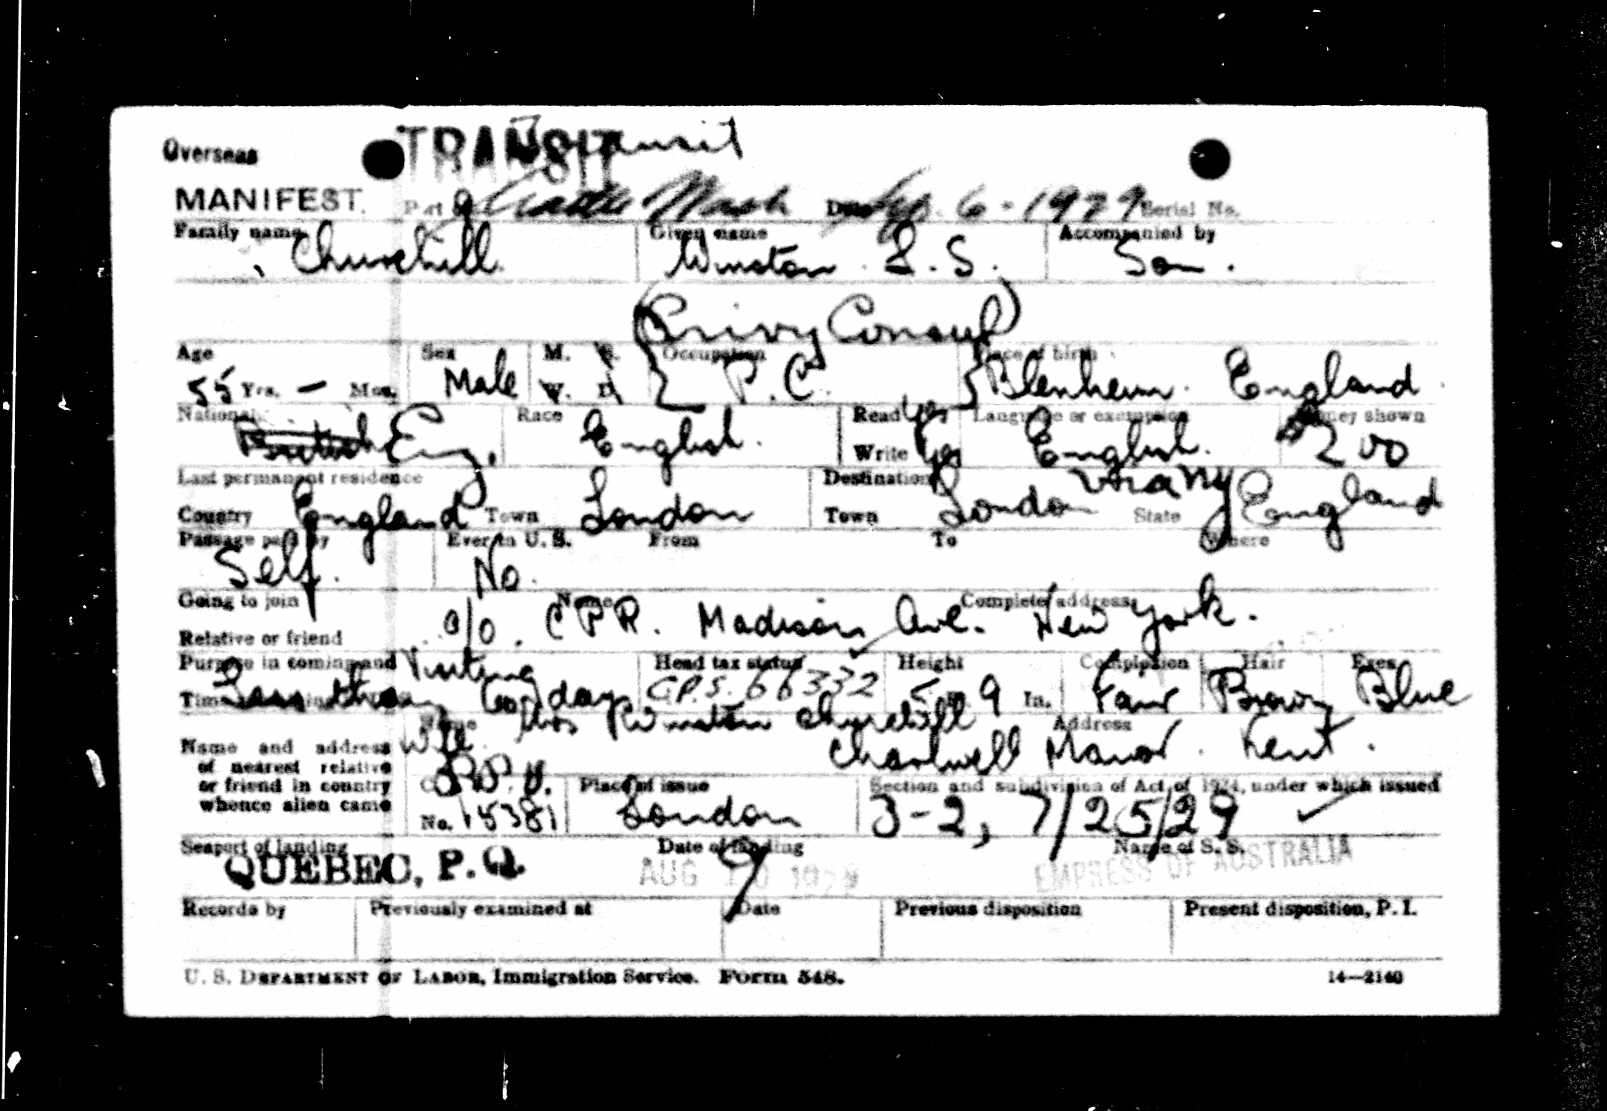 Overseas TRANSIT Transit
MANIFEST. Port of Seattle Wash Date Sep. 6 - 1929 Serial No.
Family name Churchill. Given name Winston L. S. Accompanied by Son.
(Privy Consul)
Age 55 Yrs. — Mos. Sex Male M. S. W. D. Occupation P. C. Place of birth Blenheim. England
National British Eng. Race English. Read Yes Write Yes Language or exemption English. Money shown $200
Last permanent residence Country England Town London Destination Town London State England
Passage paid by Self. Ever in U. S. No. From To Where
Going to join Relative or friend Name c/o. C P R. Madison Ave. Complete address New York.
Purpose in coming and Time Visiting Less than 60 days Head tax status C.P.S. 66332 Height 5 9 In. Complexion Fair Hair Brown Eyes Blue
Name and address of nearest relative or friend in country whence alien came Name Wife. Mrs Winston Churchill Address Chartwell Manor. Kent.
No. 15381 Place of issue London Section and subdivision of Act of 1924, under which issued 3-2, 7/25/29
Seaport of landing QUEBEC, P. Q. Date of landing AUG 9 1929 Name of S. S. EMPRESS OF AUSTRALIA
Records by Previously examined at Date Previous disposition Present disposition, P. I.
U. S. DEPARTMENT OF LABOR, Immigration Service. FORM 548. 14—2140